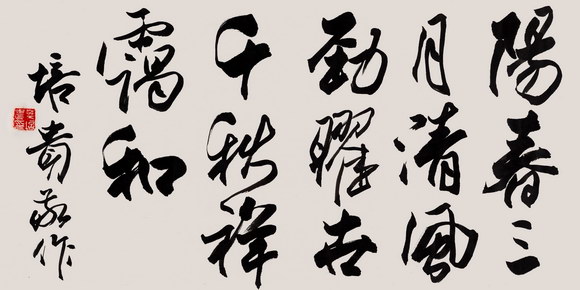 陽春三
月清風
勁曜世
千秋祥
靄和
培貴敬作